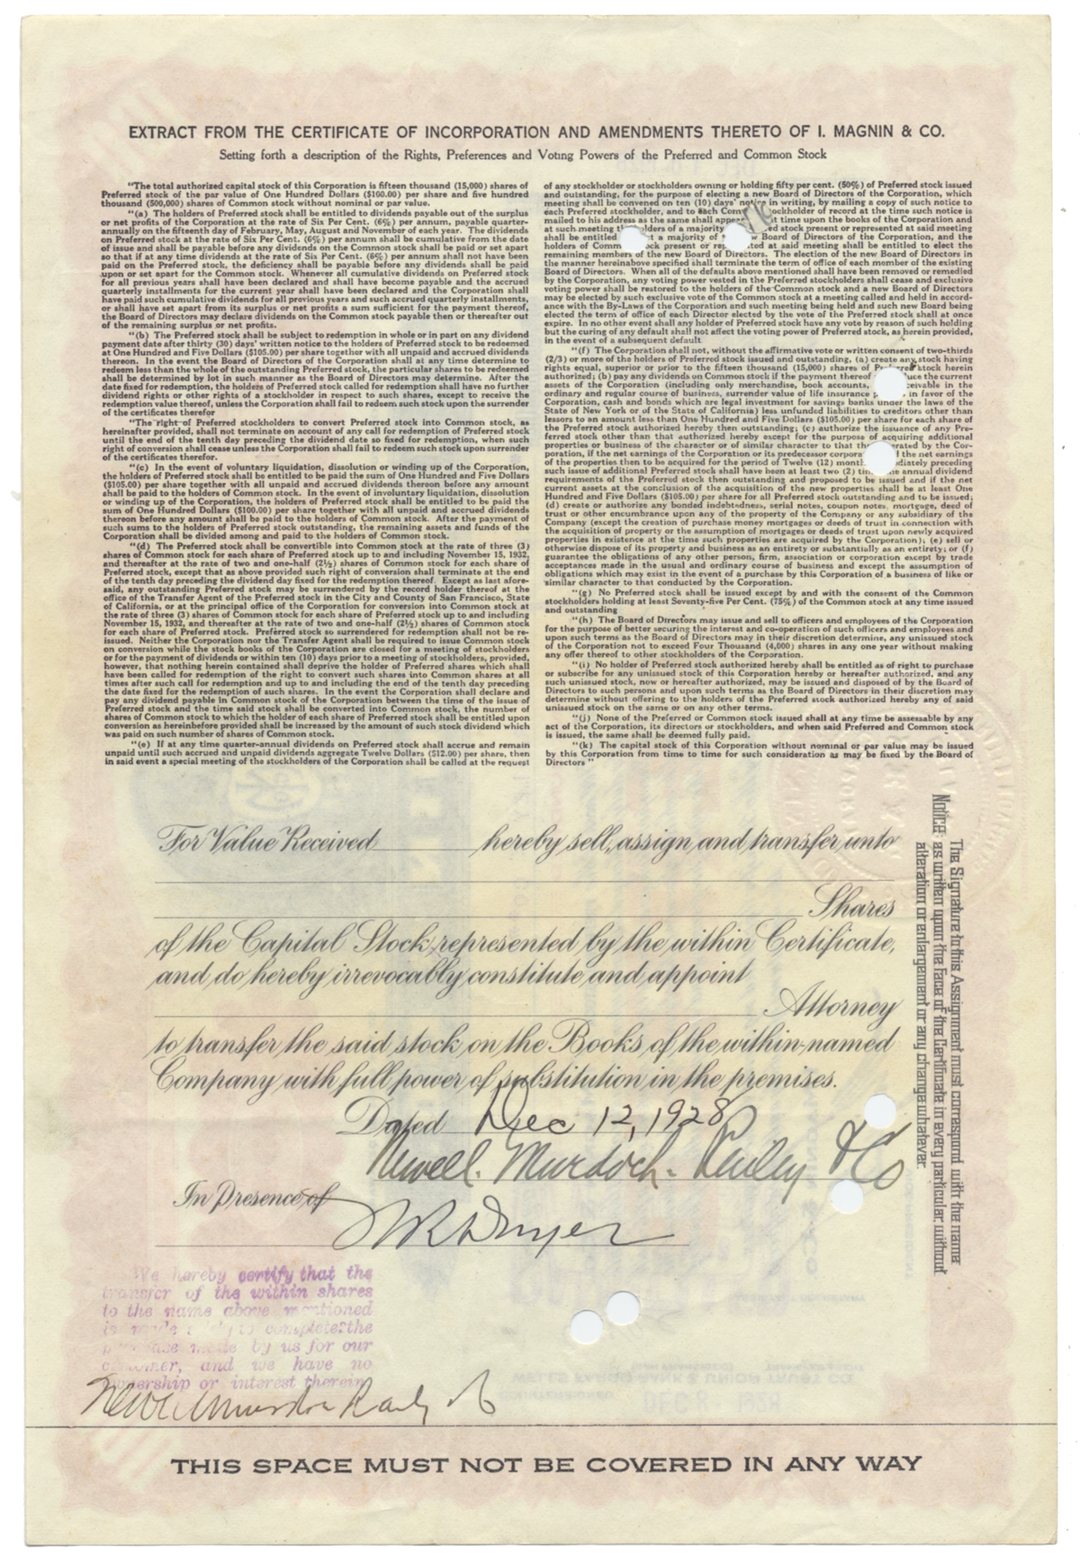 EXTRACT FROM THE CERTIFICATE OF INCORPORATION AND AMENDMENTS THERETO OF I. MAGNIN & CO.
Setting forth a description of the Rights, Preferences and Voting Powers of the Preferred and Common Stock
"The total authorized capital stock of this Corporation is fifteen thousand (15,000) shares of
Preferred stock of the par value of One Hundred Dollars ($100.00) per share and five hundred
thousand (500,000) shares of Common stock without nominal or par value.
"(a) The holders of Preferred stock shall be entitled to dividends payable out of the surplus
or net profits of the Corporation at the rate of Six Per Cent. (6%) per annum, payable quarter-
annually on the fifteenth day of February, May, August and November of each year. The dividends
on Preferred stock at the rate of Six Per Cent. (6%) per annum shall be cumulative from the date
of issue and shall be payable before any dividends on the Common stock shall be paid or set apart
so that if at any time dividends at the rate of Six Per Cent. (6%) per annum shall not have been
paid on the Preferred stock, the deficiency shall be payable before any dividends shall be paid
upon or set apart for the Common stock. Whenever all cumulative dividends on Preferred stock
for all previous years shall have been declared and shall have become payable and the accrued
quarterly installments for the current year shall have been declared and the Corporation shall
have paid such cumulative dividends for all previous years and such accrued quarterly installments,
or shall have set apart from its surplus or net profits a sum sufficient for the payment thereof,
the Board of Directors may declare dividends on the Common stock payable then or thereafter out
of the remaining surplus or net profits.
"(b) The Preferred stock shall be subject to redemption in whole or in part on any dividend
payment date after thirty (30) days' written notice to the holders of Preferred stock to be redeemed
at One Hundred and Five Dollars ($105.00) per share together with all unpaid and accrued dividends
thereon. In the event the Board of Directors of the Corporation shall at any time determine to
redeem less than the whole of the outstanding Preferred stock, the particular shares to be redeemed
shall be determined by lot in such manner as the Board of Directors may determine. After the
date fixed for redemption, the holders of Preferred stock called for redemption shall have no further
dividend rights or other rights of a stockholder in respect to such shares, except to receive the
redemption value thereof, unless the Corporation shall fail to redeem such stock upon the surrender
of the certificates therefor
"The right of Preferred stockholders to convert Preferred stock into Common stock, as
hereinafter provided, shall not terminate on account of any call for redemption of Preferred stock
until the end of the tenth day preceding the dividend date so fixed for redemption, when such
right of conversion shall cease unless the Corporation shall fail to redeem such stock upon surrender
of the certificates thereof.
"(c) In the event of voluntary liquidation, dissolution or winding up of the Corporation,
the holders of Preferred stock shall be entitled to be paid the sum of One Hundred and Five Dollars
($105.00) per share together with all unpaid and accrued dividends thereon before any amount
shall be paid to the holders of Common stock. In the event of involuntary liquidation, dissolution
or winding up of the Corporation, the holders of Preferred stock shall be entitled to be paid the
sum of One Hundred Dollars ($100.00) per share together with all unpaid and accrued dividends
thereon before any amount shall be paid to the holders of Common stock. After the payment of
such sums to the holders of Preferred stock outstanding, the remaining assets and funds of the
Corporation shall be divided among and paid to the holders of Common stock.
"(d) The Preferred stock shall be convertible into Common stock at the rate of three (3)
shares of Common stock for each share of Preferred stock up to and including November 15, 1932,
and thereafter at the rate of two and one-half (2½) shares of Common stock for each share of
Preferred stock, except that as above provided such right of conversion shall terminate at the end
of the tenth day preceding the dividend day fixed for the redemption thereof. Except as last afore-
said, any outstanding Preferred stock may be surrendered by the record holder thereof at the
office of the Transfer Agent of the Preferred stock in the City and County of San Francisco, State
of California, or at the principal office of the Corporation for conversion into Common stock at
the rate of three (3) shares of Common stock for each share of Preferred stock up to and including
November 15, 1932, and thereafter at the rate of two and one-half (2½) shares of Common stock
for each share of Preferred stock. Preferred stock so surrendered for redemption shall not be re-
issued. Neither the Corporation nor the Transfer Agent shall be required to issue Common stock
on conversion while the stock books of the Corporation are closed for a meeting of stockholders
or for the payment of dividends or within ten (10) days prior to a meeting of stockholders, provided,
however, that nothing herein contained shall deprive the holder of Preferred shares which shall
have been called for redemption of the right to convert such shares into Common shares at all
times after such call for redemption and up to and including the end of the tenth day preceding
the date fixed for the redemption of such shares. In the event the Corporation shall declare and
pay any dividend payable in Common stock of the Corporation between the time of the issue of
Preferred stock and the time said stock shall be converted into Common stock, the number of
shares of Common stock to which the holder of each share of Preferred stock shall be entitled upon
conversion as hereinbefore provided shall be increased by the amount of such stock dividend which
was paid on such number of shares of Common stock.
"(e) If at any time quarter-annual dividends on Preferred stock shall accrue and remain
unpaid until such accrued and unpaid dividends aggregate Twelve Dollars ($12.00) per share, then
in said event a special meeting of the stockholders of the Corporation shall be called at the request
of any stockholder or stockholders owning or holding fifty per cent. (50%) of Preferred stock issued
and outstanding, for the purpose of electing a new Board of Directors of the Corporation, which
meeting shall be convened on ten (10) days' notice in writing, by mailing a copy of such notice to
each Preferred stockholder, and to each Com ockholder of record at the time such notice is
mailed to his address as the same shall appe t time upon the books of the Corporation and
at such meeting t lders of a majority ed stock present or represented at said meeting
shall be entitled a majority of Board of Directors of the Corporation, and the
holders of Comm ck present or rep ted at said meeting shall be entitled to elect the
remaining members of the new Board of Directors. The election of the new Board of Directors in
the manner hereinabove specified shall terminate the term of office of each member of the existing
Board of Directors. When all of the defaults above mentioned shall have been removed or remedied
by the Corporation, any voting power vested in the Preferred stockholders shall cease and exclusive
voting power shall be restored to the holders of the Common stock and a new Board of Directors
may be elected by such exclusive vote of the Common stock at a meeting called and held in accord-
ance with the By-Laws of the Corporation and such meeting being held and such new Board being
elected the term of office of each Director elected by the vote of the Preferred stock shall at once
expire. In no other event shall any holder of Preferred stock have any vote by reason of such holding
but the curing of any default shall not affect the voting power of Preferred stock, as herein provided,
in the event of a subsequent default.
"(f) The Corporation shall not, without the affirmative vote or written consent of two-thirds
(2/3) or more of the holders of Preferred stock issued and outstanding, (a) create any stock having
rights equal, superior or prior to the fifteen thousand (15,000) shares of Preferred stock herein
authorized; (b) pay any dividends on Common stock if the payment thereof uce the current
assets of the Corporation (including only merchandise, book accounts, eivable in the
ordinary and regular course of business, surrender value of life insurance p in favor of the
Corporation, cash and bonds which are legal investment for savings banks under the laws of the
State of New York or of the State of California) less unfunded liabilities to creditors other than
lessors to an amount less than One Hundred and Five Dollars ($105.00) per share for each share of
the Preferred stock authorized hereby then outstanding; (c) authorize the issuance of any Pre-
ferred stock other than that authorized hereby except for the purpose of acquiring additional
properties or business of the character or of similar character to that erated by the Cor-
poration, if the net earnings of the Corporation or its predecessor corpora d the net earnings
of the properties then to be acquired for the period of Twelve (12) mont diately preceding
such issue of additional Preferred stock shall have been at least two (2) times the annual dividend
requirements of the Preferred stock then outstanding and proposed to be issued and if the net
current assets at the conclusion of the acquisition of the new properties shall be at least One
Hundred and Five Dollars ($105.00) per share for all Preferred stock outstanding and to be issued;
(d) create or authorize any bonded indebtedness, serial notes, coupon notes, mortgage, deed of
trust or other encumbrance upon any of the property of the Company or any subsidiary of the
Company (except the creation of purchase money mortgages or deeds of trust in connection with
the acquisition of property or the assumption of mortgages or deeds of trust upon newly acquired
properties in existence at the time such properties are acquired by the Corporation); (e) sell or
otherwise dispose of its property and business as an entirety or substantially as an entirety; or (f)
guarantee the obligations of any other person, firm, association or corporation except by trade
acceptances made in the usual and ordinary course of business and except the assumption of
obligations which may exist in the event of a purchase by this Corporation of a business of like or
similar character to that conducted by the Corporation.
"(g) No Preferred stock shall be issued except by and with the consent of the Common
stockholders holding at least Seventy-five Per Cent. (75%) of the Common stock at any time issued
and outstanding
"(h) The Board of Directors may issue and sell to officers and employees of the Corporation
for the purpose of better securing the interest and co-operation of such officers and employees and
upon such terms as the Board of Directors may in their discretion determine, any unissued stock
of the Corporation not to exceed Four Thousand (4,000) shares in any one year without making
any offer thereof to other stockholders of the Corporation.
"(i) No holder of Preferred stock authorized hereby shall be entitled as of right to purchase
or subscribe for any unissued stock of this Corporation hereby or hereafter authorized, and any
such unissued stock, now or hereafter authorized, may be issued and disposed of by the Board of
Directors to such persons and upon such terms as the Board of Directors in their discretion may
determine without offering to the holders of the Preferred stock authorized hereby any of said
unissued stock on the same or on any other terms.
"(j) None of the Preferred or Common stock issued shall at any time be assessable by any
act of the Corporation, its directors or stockholders, and when paid Preferred and Common stock
is issued, the same shall be deemed fully paid.
"(k) The capital stock of this Corporation without nominal or par value may be issued
by this Corporation from time to time for such consideration as may be fixed by the Board of
Directors"
For Value Received hereby sell, assign and transfer unto
Shares
of the Capital Stock, represented by the within Certificate,
and do hereby irrevocably constitute and appoint
Attorney
to transfer the said stock on the Books of the within-named
Company with full power of substitution in the premises.
Dated Dec 12, 1928
Newell. Murdoch. Railey & Co
In Presence of
Notice: The Signature to this Assignment must correspond with the name
as written upon the face of the Certificate in every particular, without
alteration or enlargement or any change whatever.
We hereby certify that the
transfer of the within shares
to the name above mentioned
is made to complete the
made by us for our
customer, and we have no
ownership or interest therein
THIS SPACE MUST NOT BE COVERED IN ANY WAY